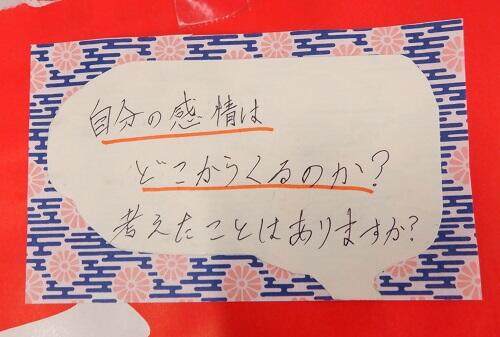 自分の感情は
どこからくるのか?
考えたことはありますか?